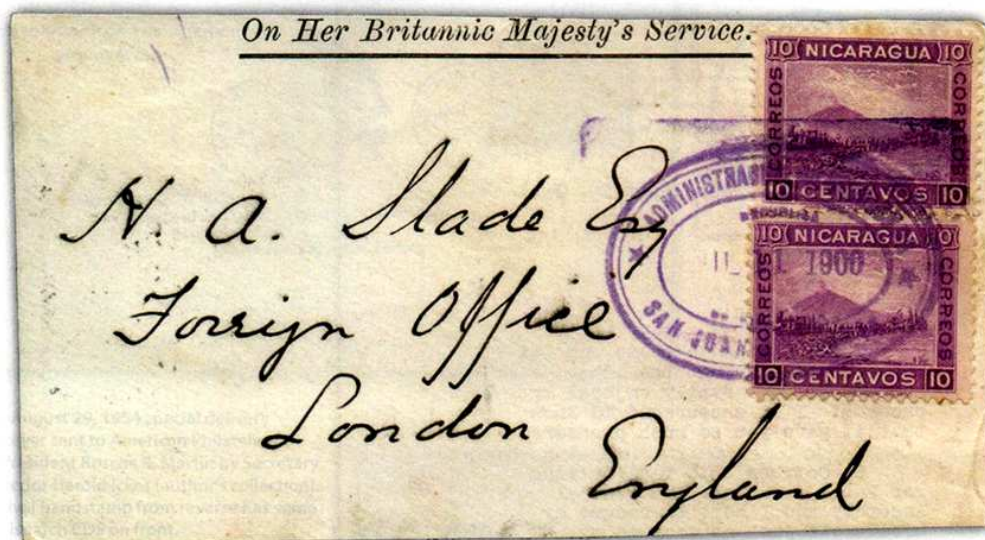 On Her Britannic Majesty's Service.
10 NICARAGUA 10
CORREOS
CORREOS
10 CENTAVOS 10
10 NICARAGUA 10
CORREOS
CORREOS
10 CENTAVOS 10
ADMINISTRA
REPUBLICA
1900
SAN JUAN
H. A. Slade Esq
Foreign Office
London
England